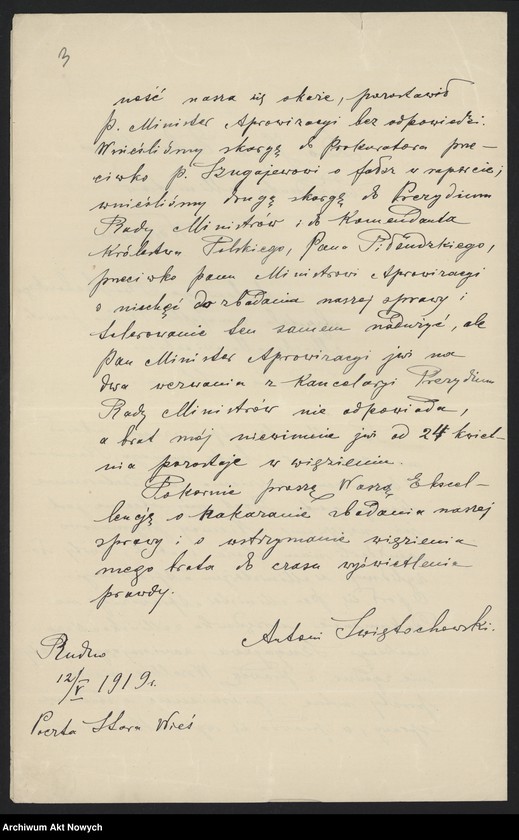 3
ność nasza się okaże, pozostawił
p. Minister Aprowizacyi bez odpowiedzi.
Wnieśliśmy skargę do Prokuratora prze-
ciwko p. Szugajewowi o fałsz w raporcie;
wnieśliśmy drugą skargę do Prezydium
Rady Ministrów i do Komendanta
Królestwa Polskiego, Pana Piłsudzkiego,
przeciwko panu Ministrowi Aprowizacyi
o niechęć do zbadania naszej sprawy i
tolerowanie tem samem nadużyć, ale
Pan Minister Aprowizacyi już na
dwa wezwania z Kancelaryi Prezydium
Rady Ministrów nie odpowiada,
a brat mój niewinnie już od 24 kwiet-
nia pozostaje w więzieniu.
Pokornie proszę Waszą Ekscel-
lencję o nakazanie zbadania naszej
sprawy i o wstrzymanie więzienia
mego brata do czasu wyświetlenia
prawdy.
Antoni Świętochowski.
Rudno
12/V 1919 r.
Poczta Stara Wieś
Archiwum Akt Nowych